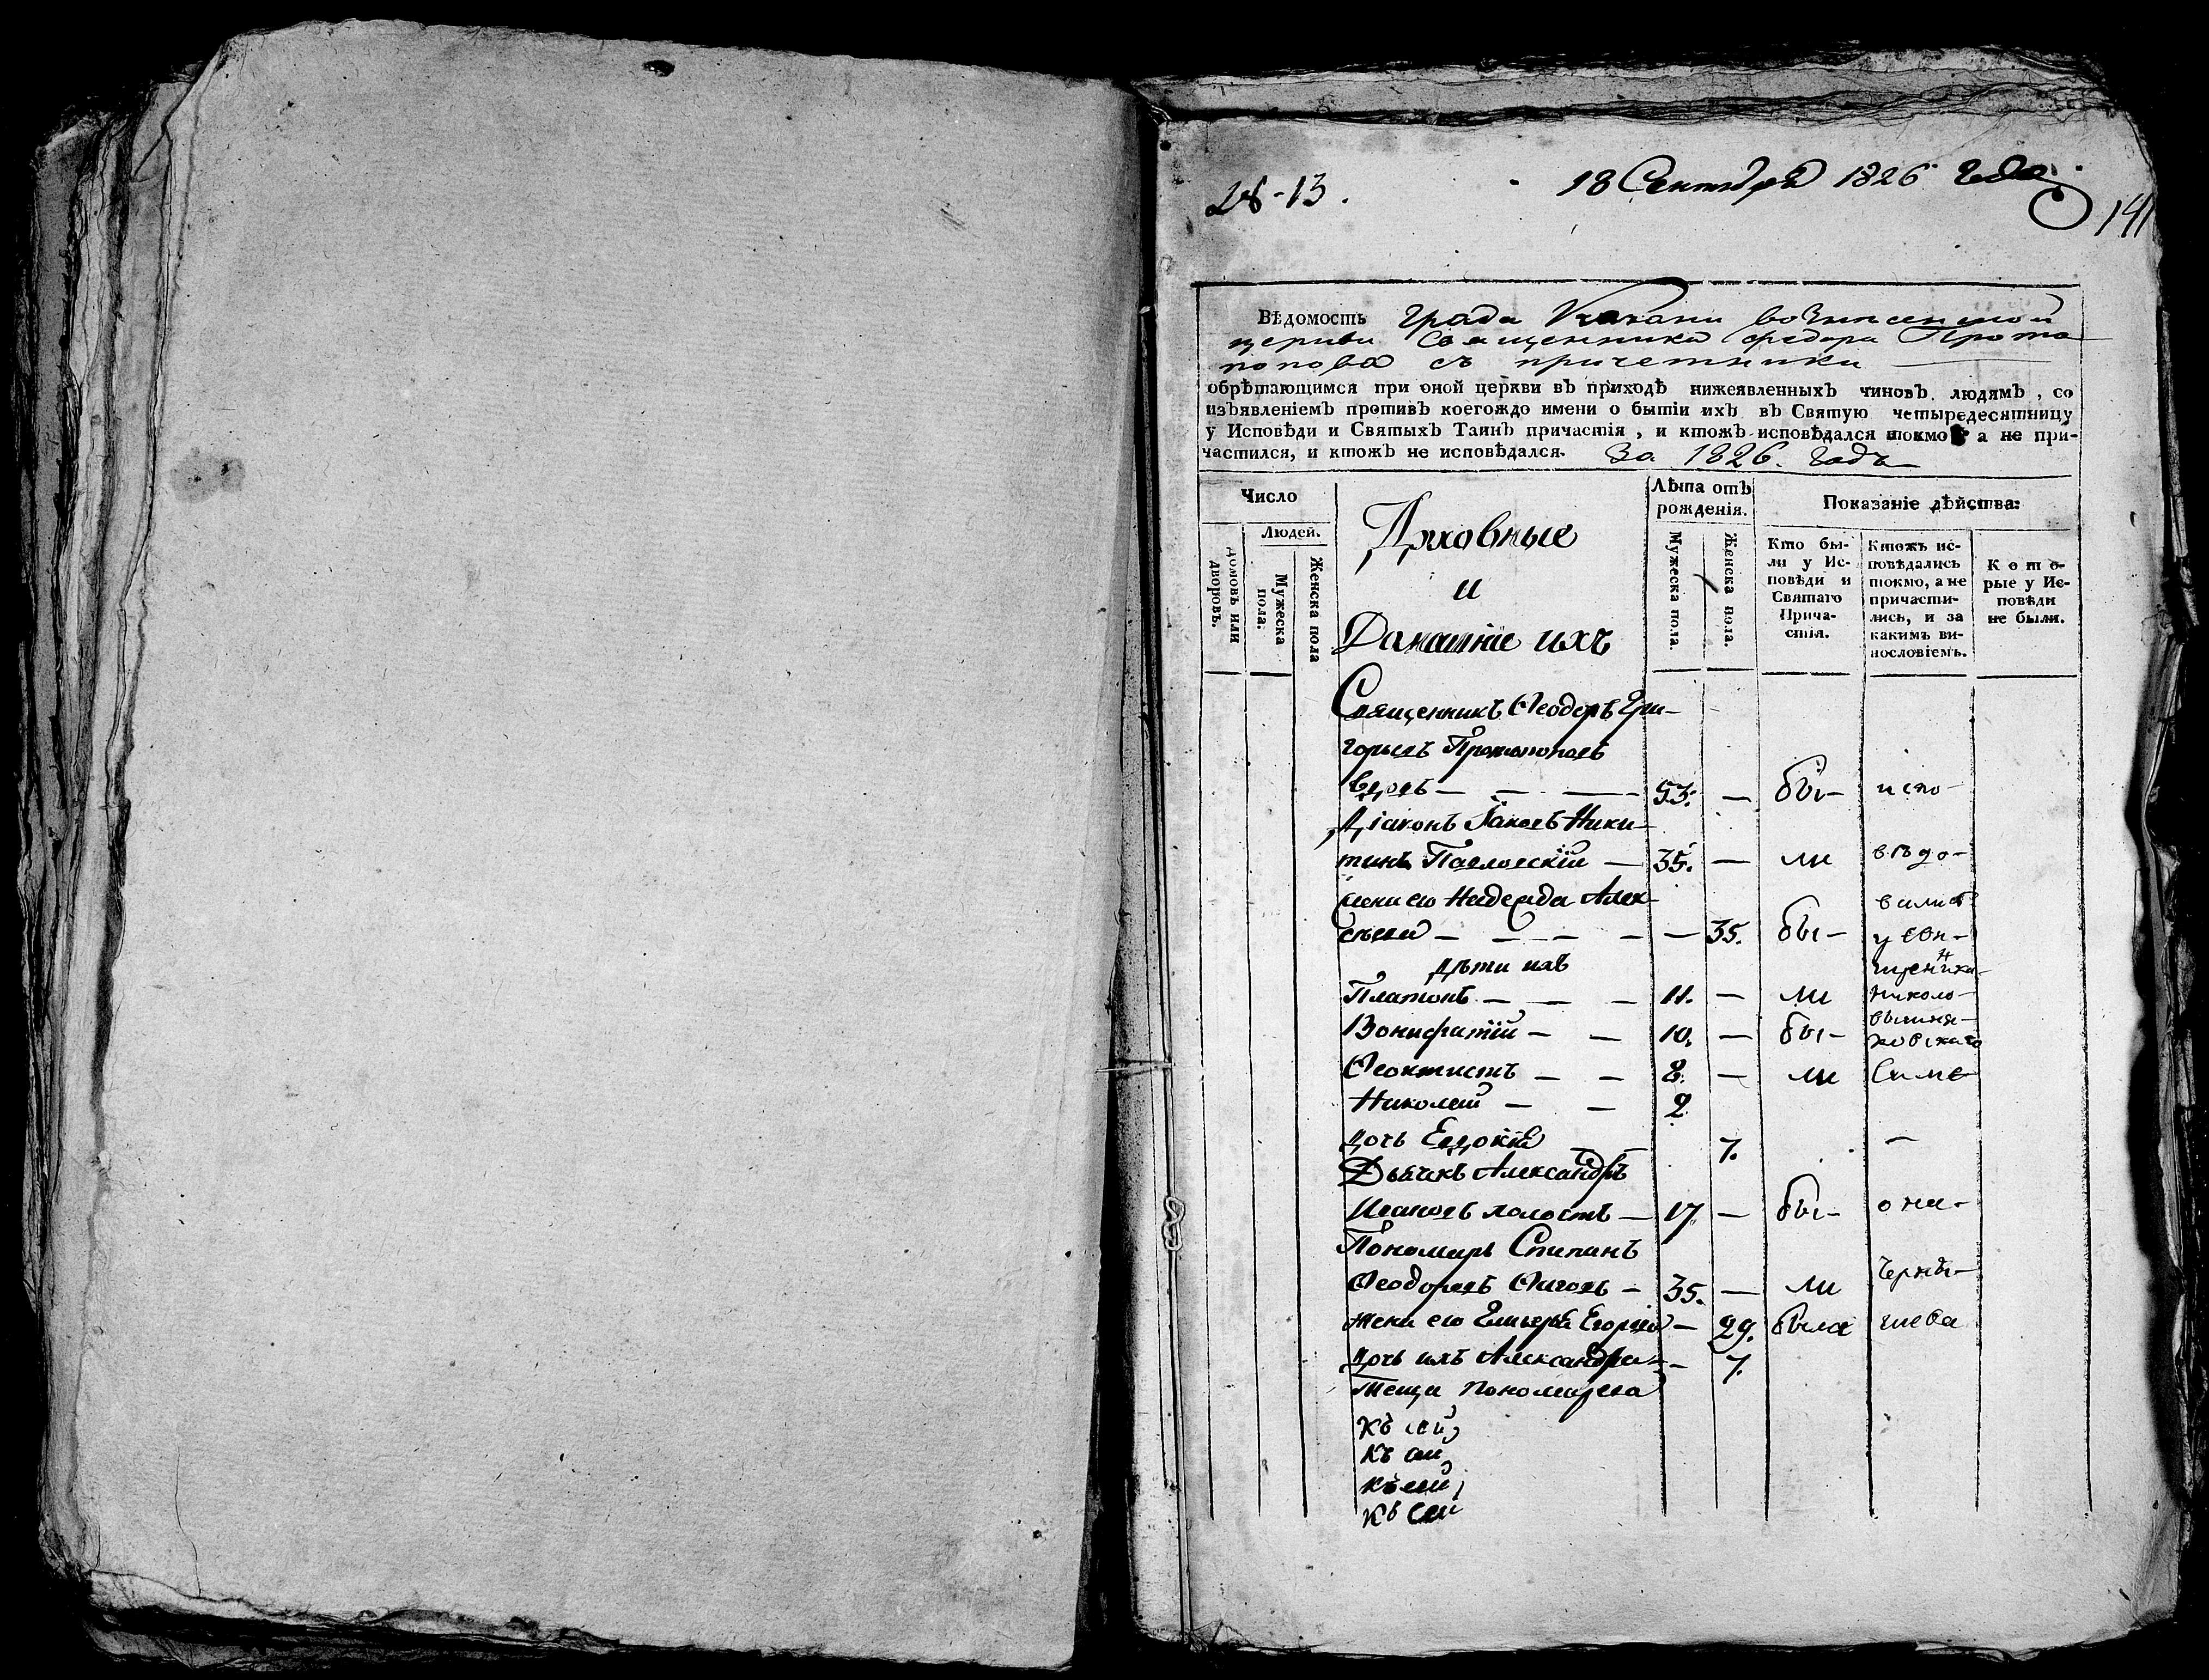 18 Сентября 1826 года
28-13.
141
Вѣдомость Града Казани вознесенской
церкви Священника Федора Прото
попова съ причетники
обрѣтающимся при оной церкви въ приходѣ нижеявленныхъ чиновъ людямъ, со
изъявленіемъ противъ коегождо имени о бытіи ихъ въ Святую четыредесятницу
у Исповѣди и Святыхъ Таинъ причастія, и ктожъ исповѣдался токмо а не при-
частился, и ктожъ не исповѣдался. За 1826. годъ
Число
Людей.
домовъ или дворовъ.
Мужеска пола.
Женска пола
Духовные
и
Домашніе ихъ
Лѣта отъ
рожденія.
Мужеска пола.
Женска пола.
Показаніе дѣйства:
Кто бы-
ли у Ис-
повѣди и
Святаго
Прича-
стія.
Ктожъ ис-
повѣдались
токмо, а не
причасти-
лись, и за
какимъ ви-
нословіемъ.
Кото-
рые у Ис-
повѣди
не были.
Священникъ Ѳеодоръ Гри-
горьевъ Протопоповъ
вдовъ — 53. — бы- испо-
Діаконъ Іаковъ Ники-
тинъ Павловскій — 35. — ли вѣдо-
жена его Надежда Алек- вались
сѣева — 35. бы- у свя-
Дѣти ихъ щенника
Платонъ — 11. — ли николо-
Вонифатій — 10. — бы- вишня-
ковскаго
Ѳеоктистъ — 8. — ли Симе
Николай — 2
дочь Евдокія 7. —
Дьячекъ Александръ
Ивановъ холостъ — 17 — бы- она-
Пономарь Стипанъ
Ѳеодоровъ — 35. — ли Черны-
жена его Егорова — 29. была шева
дочь ихъ Александра — 7.
Теща пономарева
къ сей
къ сей
къ сей
къ сей